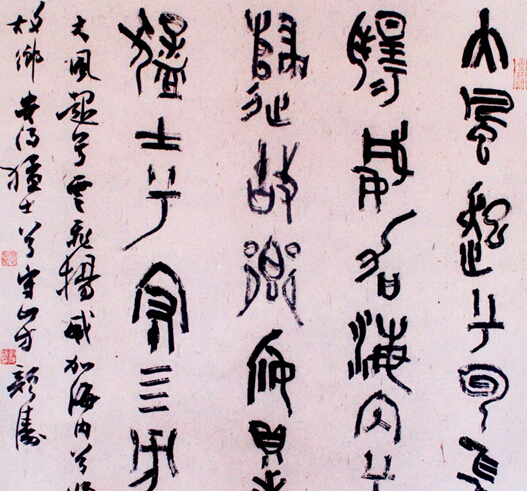 大風起兮雲飛
揚威加海内兮
歸故鄉安得
猛士兮守四方
大風起兮雲飛揚威加海内兮歸
故鄉安得猛士兮守四方 顏濤